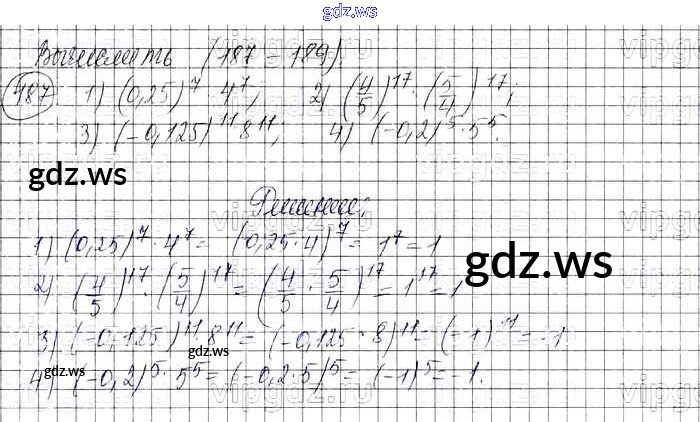 gdz.ws
Вычислить (187 – 189).
487. 1) (0,25)⁷ 4⁷; 2) (4/5)¹⁷ · (5/4)¹⁷;
3) (-0,125)¹¹ 8¹¹; 4) (-0,2)⁵ · 5⁵.
gdz.ws
Решение:
1) (0,25)⁷ · 4⁷ = (0,25 · 4)⁷ = 1⁷ = 1
gdz.ws
2) (4/5)¹⁷ · (5/4)¹⁷ = (4/5 · 5/4)¹⁷ = 1¹⁷ = 1
3) (-0,125)¹¹ · 8¹¹ = (-0,125 · 8)¹¹ = (-1)¹¹ = -1
gdz.ws
4) (-0,2)⁵ · 5⁵ = (-0,2 · 5)⁵ = (-1)⁵ = -1.